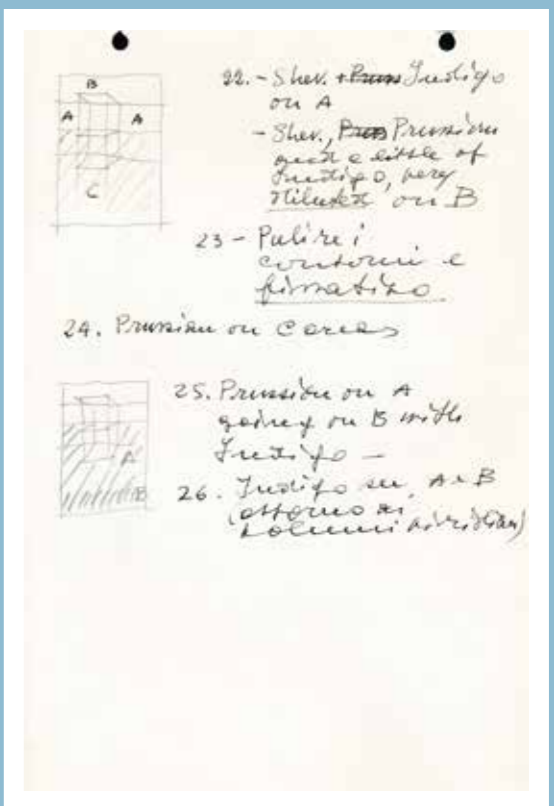 B
A A
C
22. - Shev. + Pruss Indigo
on A
- Shev., Pruss Prussian
and a little of
Indigo, very
diluted on B
23 - Pulire i
contorni e
fissativo
24. Prussian on C areas
A
B
25. Prussian on A
going on B with
Indigo -
26. Indigo su A e B
(attorno ai
volumi viridian)